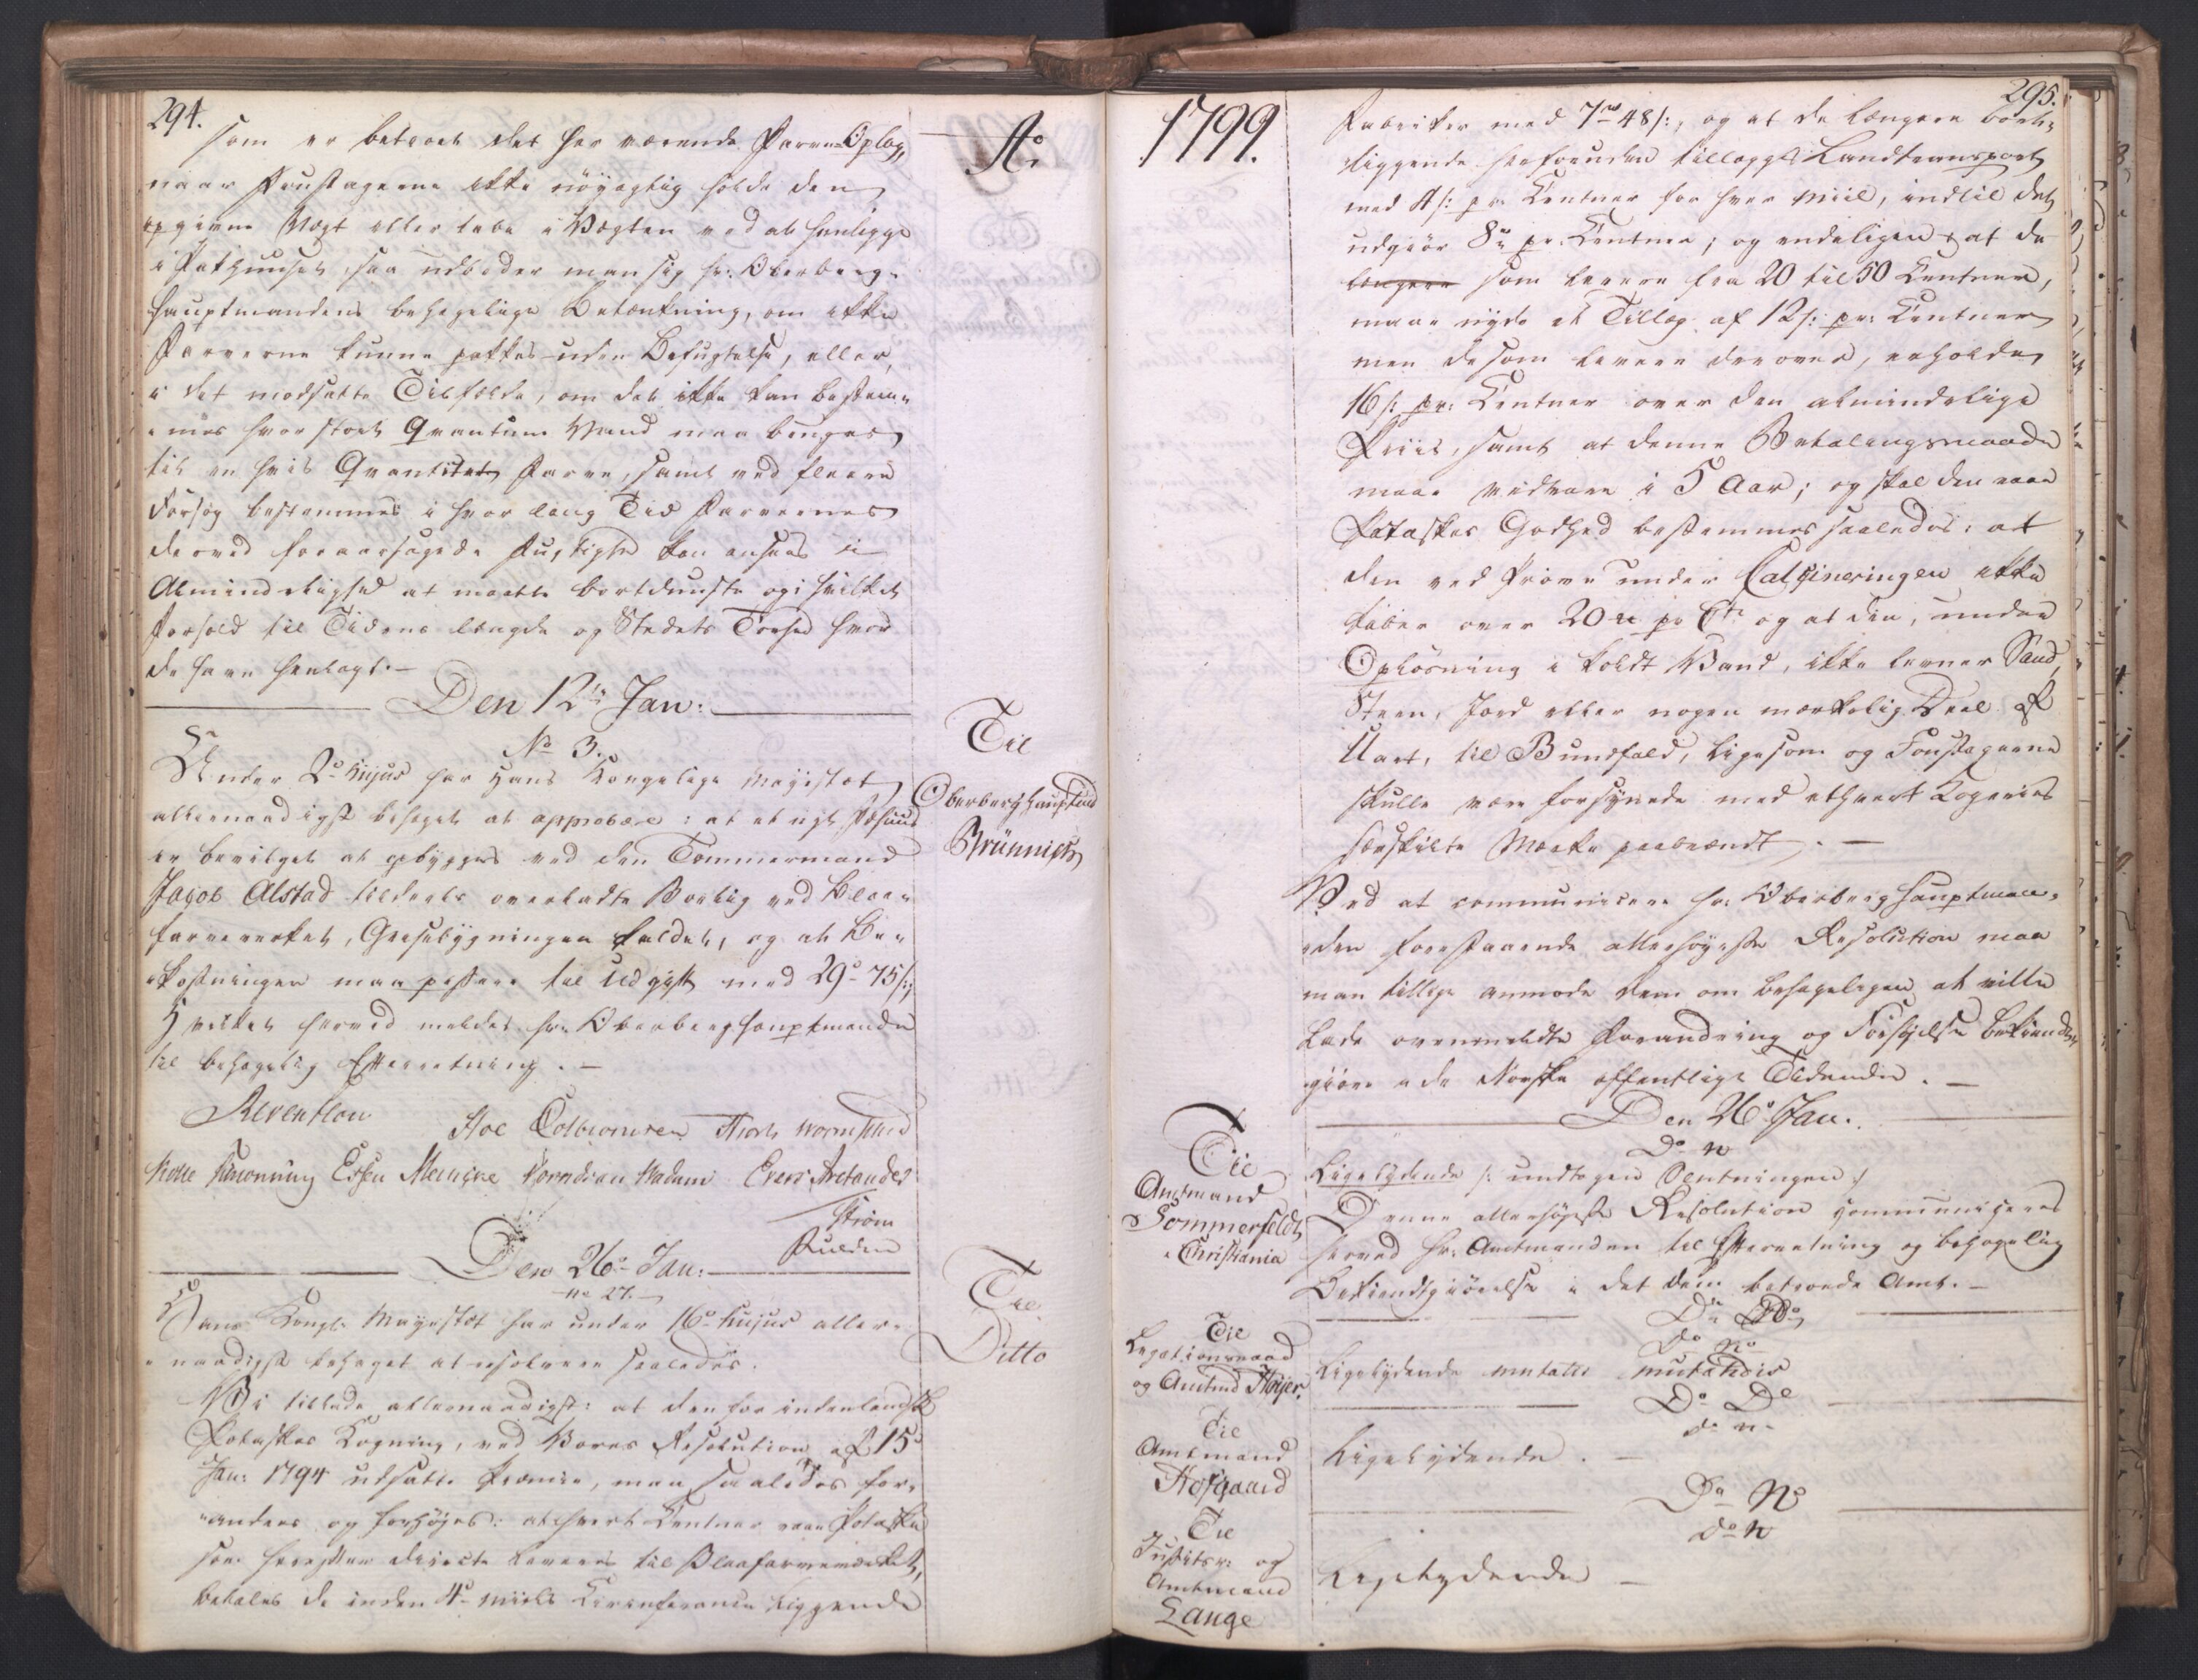 294.
som er betroet det her værende Farve-Oplag,
naar Fustagerne ikke nöyagtig holde den
opgivne Vægt eller tabe i Vægten ved at henligge
i Pakhuuset, saa udbeder man sig hr: Oberberg-
hauptmandens behagelige Betænkning, om ikke
Farverne kunne pakkes uden Befugtelse, eller,
i det modsatte Tilfælde, om det ikke kan bestem-
mes hvor stort Qvantum Vand maa bruges
til en hvis Qvantitet Farve, samt ved fleere
Forsög bestemmes i hvor lang Tid Farvernes
derved foraarsagede Fugtighed kan ansees i
Almindelighed at maatte bortdunste og i hvilket
Forhold til Tidens længde og Stedets Tørhed hvor
de have henlagt.—
Den 12te Jan:
No 3.
Under 2d hujus har Hans Kongelige Mayestæt
allernaadigst behaget at approbere: at et nyt Fæhuus
er bevilget at opbygges ved den Tømmermand
Jacob Alstad tildeels overladte Boelig ved Blaae-
farveverket, Gresebygningen kaldet, og at Be-
kostningen maa passere til Udgift med 29 rd 75 s:,
Hvilket herved meldes hr: Oberberghauptmanden
til behagelig Efterretning.—
Reventlou Hoe Colbiornsen Hiort Wormskiold
Knonning Essen Meinike Vorndran Wadum Evers Aretander
Strøm
Den 26de Jan:
No 27.
Hans Kongl: Mayestæt har under 16d hujus aller-
naadigst behaget at resolvere saaledes:
Vi tillade allernaadigst: at den for indenlandsk
Potaskes Kogning, ved Vores Resolution af 15d
Jan: 1794 udsatte Præmie, maa saaledes for-
andres og forhöyes: at hvert Centner raae Potaske
som herefter directe leveres til Blaafarveverket,
betales de inden 4re Miils Circumference liggende
Ao
Til
Oberberghauptmd
Brünnich
Til
Ditto
1799.
295.
Fabriker med 7 rd 48 s:, og at de længere bort-
liggende herforuden tillægges Landtransport
med 4 s: pr: Centner for hver Miil, indtil det
udgiör 8 rd pr: Centner; og endeligen at de
længere som levere fra 20 til 50 Centner,
maae nyde et Tillæg af 12 s: pr: Centner
men de som levere derover, erholde
16 s: pr: Centner over den almindelige
Priis, samt at denne Betalingsmaade
maae vedvare i 5 Aar; og skal den raae
Potaskes Godhed bestemmes saaledes: at
den ved Pröve under Calcineringen ikke
taber over 20 pr Ct: og at den, under
Oplösning i koldt Vand, ikke levner Sand,
Steen, Jord eller nogen mærkelig Deel af
Uart, til Bundfald, ligesom og Fustagerne
skulle være forsynede med ethvert Kogeries
særskilte Mærke paabrændt.—
Ved at communicere hr: Oberberghauptman-
den forestaaende allerhöyeste Resolution maa
man tillige anmode Dem om behageligen at ville
lade ovenmeldte Forandring og Forhöyelse bekiendt-
giöre i de Norske offentlige Tidender.—
Den 26d Jan:
Do No
Ligelydende /: undtagen Slutningen :/
Denne allerhöyeste Resolution communiceres
herved hr: Amtmanden til Efterretning og behagelig
Bekiendtgiörelse i det Dem betroede Amt.—
Do Do
Do No
Ligelydende mutatis mutandis
Do Do
do n.
Ligelydende.—
Do No
do n
Ligelydende—
Til
Amtmand
Sommerfeldt
i Christiania
Til
Legationsraad
og Amtmd Hoyer.
Til
Amtmand
Hofgaard
Til
Justitsr: og
Amtmand
Lange